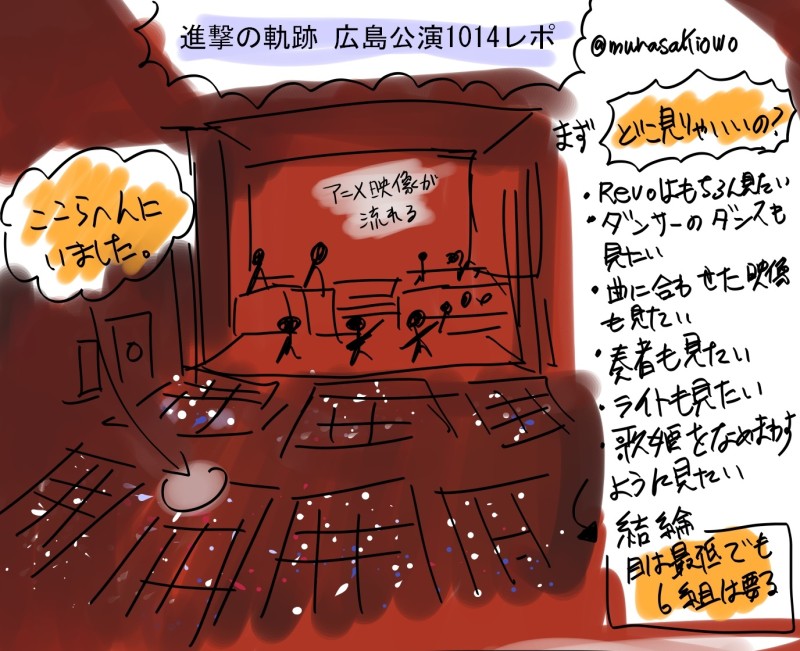 進撃の軌跡 広島公演1014レポ
@murasakiowo
まず
どこ見りゃいいの?
・Revoはもちろん見たい
・ダンサーのダンスも
見たい
・曲に合わせた映像
も見たい
・奏者も見たい
・ライトも見たい
・歌姫をなめまわす
ように見たい
結論
目は最低でも
6組は要る
ここらへんに
いました。
アニメ映像が
流れる